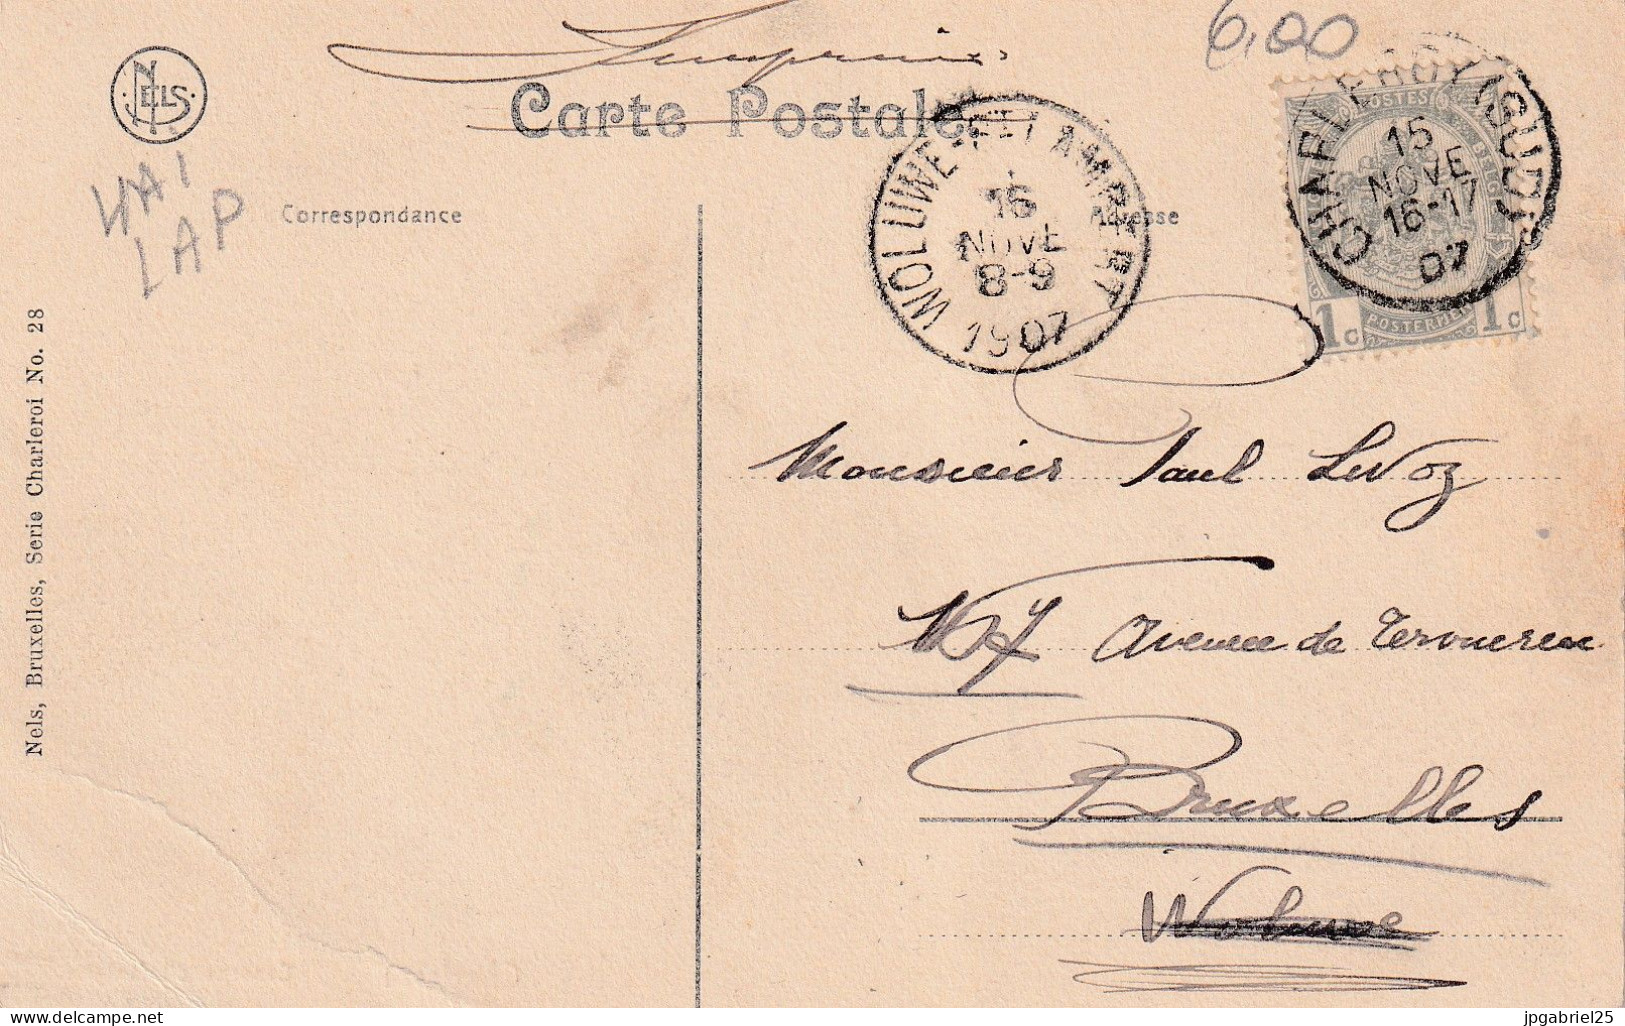 Imprimé
6,00
NELS
Carte Postale
HAI
LAP
Correspondance
Adresse
WOLUWE-ST-LAMBERT
16
NOVE
8-9
1907
CHARLEROY
15
NOVE
16-17
07
POSTES
1c POSTERIJEN 1c
Nels, Bruxelles, Serie Charleroi No. 28
Monsieur Paul
Avenue de Tervueren
Bruxelles
Woluwe
delcampe.net
jpgabriel25